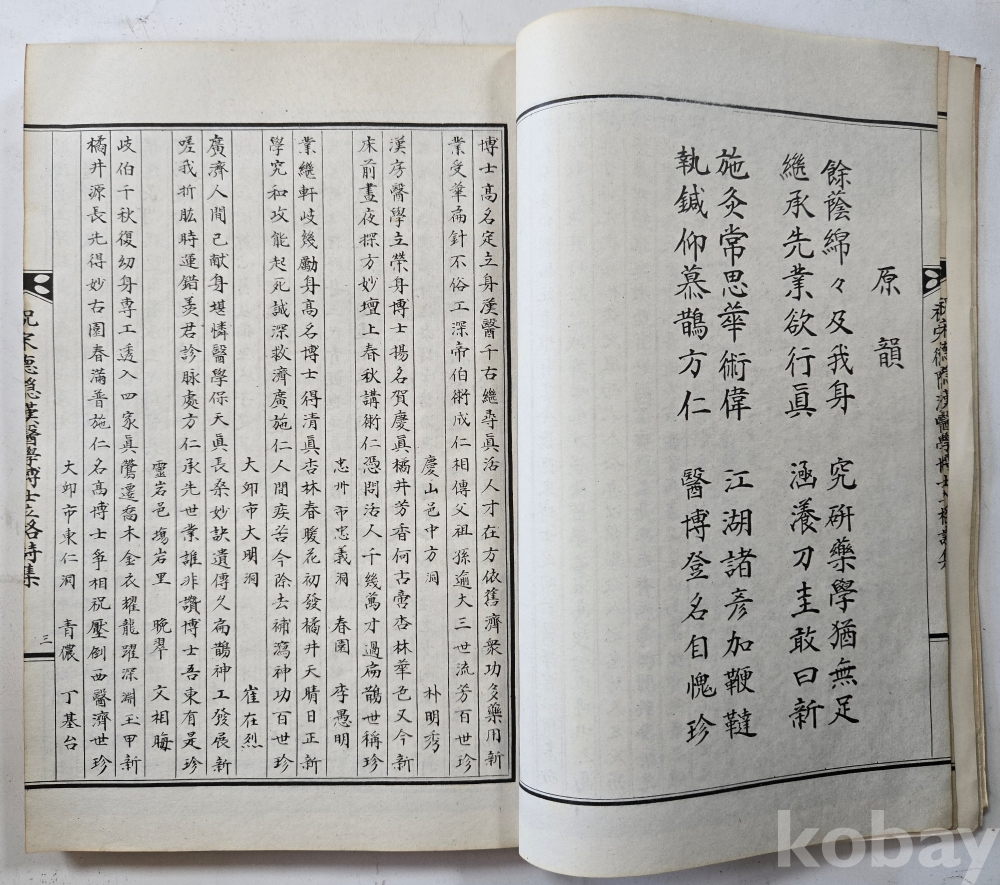 原韻
餘蔭綿々及我身 究硏藥學猶無足
繼承先業欲行眞 涵瀁刀圭敢曰新
施灸常思華術偉 江湖諸彦加鞭韃
執鍼仰慕鵲方仁 醫博登名自愧珍
博士高名定立身漢醫千古繼尋眞活人才在方依舊濟衆功多藥用新
業受華扁針不俗工深帝伯術成仁相傳父祖孫逾大三世流芳百世珍
慶山邑中方洞 朴明秀
漢房醫學立榮身博士揚名賀慶眞橘井芳香何古啻杏林華色又今新
床前晝夜探方妙壇上春秋講術仁憑問活人千幾萬才過扁鵲世稱珍
忠州市忠義洞 春園 李愚明
業繼軒岐幾勵身高名博士得清眞杏林春暖花初發橘井天晴日正新
學究和攻能起死誠深救濟廣施仁人間疾苦今除去補瀉神功百世珍
大卯市大明洞 崔在烈
廣濟人間已献身堪憐醫學保天眞長桑妙訣遺傳久扁鵲神工發展新
嗟我折肱時運錯羨君診脉處方仁承先世業誰非讚博士吾東有是珍
靈岩邑塢岩里 晩翠 文相晦
岐伯千秋復幼身専工透入四家眞鶯遷喬木金衣耀龍躍深淵玉甲新
橘井源長先得妙古園春滿普施仁名高博士爭相祝壓倒西醫濟世珍
大卯市東仁洞 青儂 丁基台
祝宋德隐漢醫學博士 詩集
三
kobay